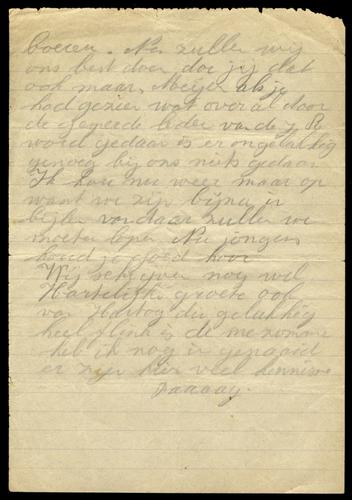 boeren. Nu zullen wij
ons best doen doe jij dat
ook maar, Meijer als je
had gezien wat overal door
de leden van de J. B
word gedaan is er ongelukkig
genoeg bij ons niets gedaan
Ik hou nu weer maar op
want we zijn bijna in
Beijlen van daar zullen we
moeten lopen Nu jongens
houd je goed hoor
Wij schrijven nog wel
Hartelijke groete ook
van Hartog die gelukkig
heel flink is de
heb ik nog in gepraaid
er zijn hier veel kennisse
Daaaag.